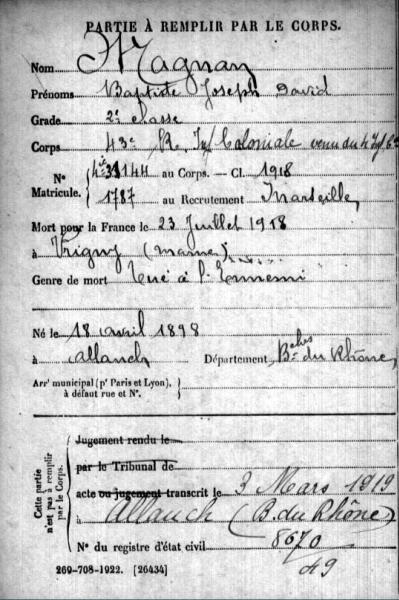 PARTIE À REMPLIR PAR LE CORPS.
Nom Magnan
Prénoms Baptiste Joseph David
Grade 2e classe
Corps 43e R. Inf Coloniale venu du 4e Inf Cole
Nº Matricule. 31144 au Corps. — Cl. 1918
1787 au Recrutement Marseille
Mort pour la France le 23 Juillet 1918
à Vrigny (Marne)
Genre de mort Tué à l'Ennemi
Né le 18 avril 1898
à Allauch Département Bches du Rhône
Arrt municipal (pr Paris et Lyon), à défaut rue et Nº.
Cette partie n'est pas à remplir par le Corps.
Jugement rendu le
par le Tribunal de
acte ou jugement transcrit le 3 Mars 1919
à Allauch (B. du Rhône)
Nº du registre d'état civil 8670
49
269-708-1922. [26434]